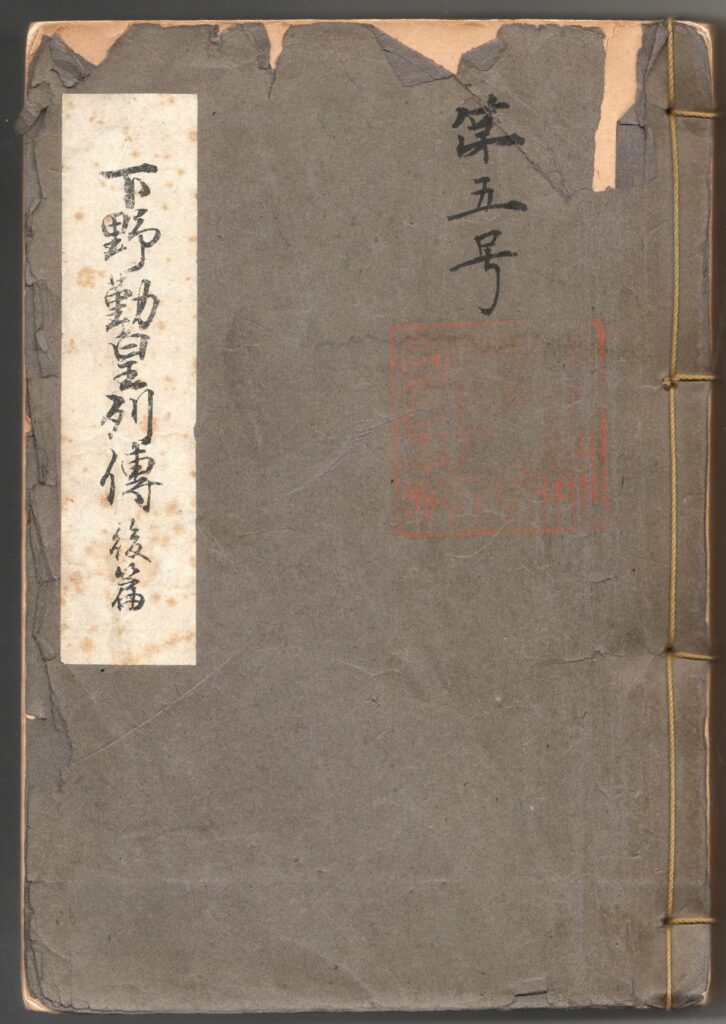 第五号
下野勤皇列傳 後篇